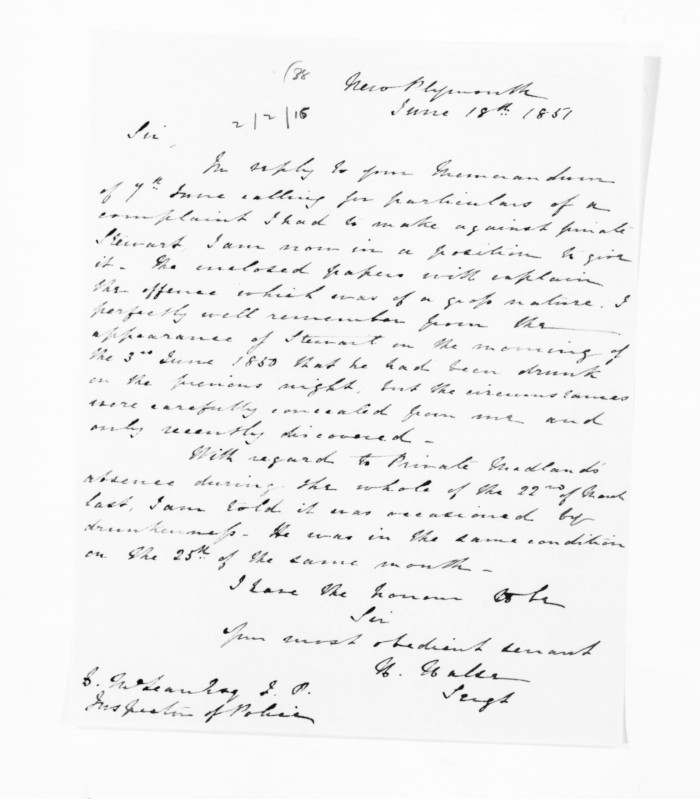 (38
New Plymouth
June 18th 1851
2/2/16
Sir,
In reply to your Memorandum
of 7th June calling for particulars of a
complaint I had to make against private
Stewart, I am now in a position to give
it - The enclosed papers will explain
the offence which was of a gross nature. I
perfectly well remember from the
appearance of Stewart on the morning of
the 3rd June 1850 that he had been drunk
on the previous night, but the circumstances
were carefully concealed from me and
only recently discovered -
With regard to Private Medland's
absence during the whole of the 22nd of March
last, I am told it was occasioned by
drunkenness - He was in the same condition
on the 25th of the same month -
I have the honour to be
Sir
Your most obedient servant
H. Halse
Sergt
McLean Esq J. P.
Inspector of Police